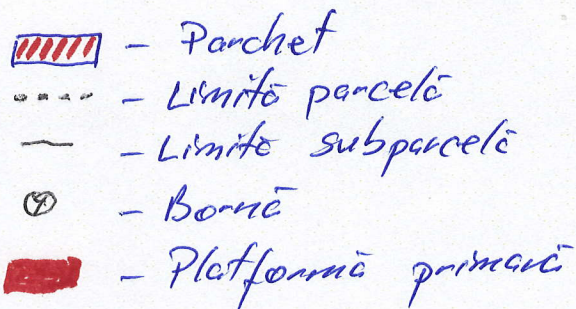 – Parchet
– Limită parcelă
– Limită subparcelă
– Bornă
– Platformă primară